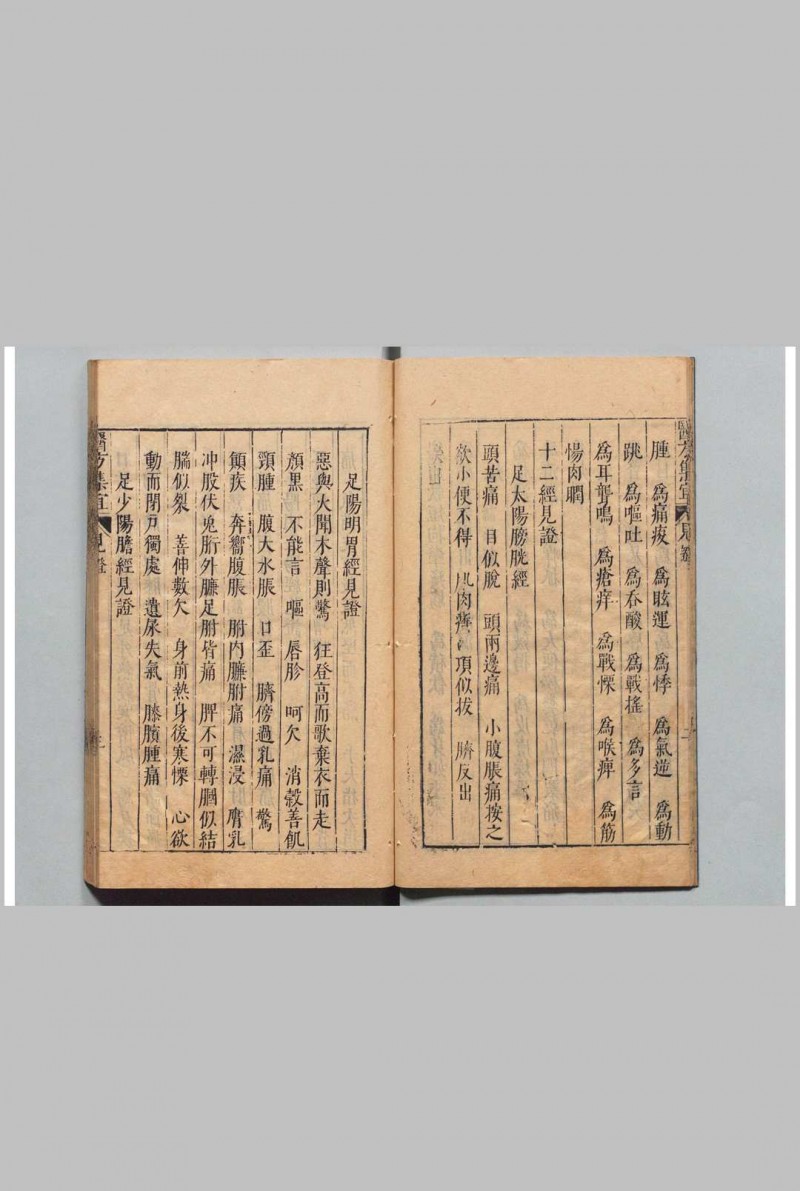 醫方集宜 見證
腫 為痛痠 為眩運 為悸 為氣逆 為動
跳 為嘔吐 為吞酸 為戰搖 為多言
為耳聾鳴 為瘡痒 為戰慄 為喉痺 為筋
惕肉瞤
十二經見證
足太陽膀胱經
頭苦痛 目似脫 頭兩邊痛 小腹脹痛按之
欲小便不得 肌肉 項似拔 臍反出
足陽明胃經見證
惡與火聞木聲則驚 狂登高而歌棄衣而走
顏黑 不能言 嘔 唇胗 呵欠 消穀善飢
頸腫 腹大水脹 口歪 臍傍過乳痛 驚
顛疾 奔嚮腹脹 胕內臁胕痛 濕浸 膺乳
冲股伏兎胻外臁足胕皆痛 髀不可轉膕似結
腨似裂 善伸數欠 身前熱身後寒慄 心欲
動而閉戶獨處 遺尿失氣 膝臏腫痛
足少陽膽經見證
醫方集宜 見證